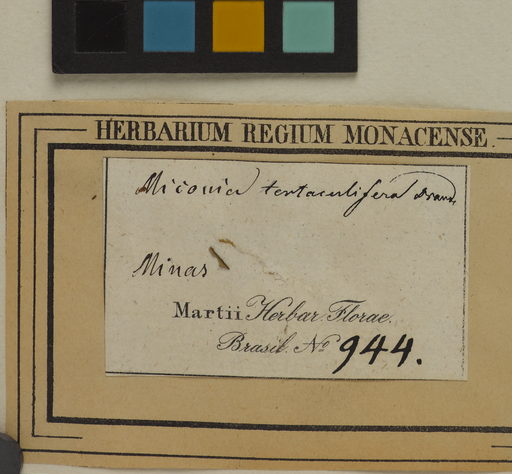 HERBARIUM REGIUM MONACENSE.
Miconia tentaculifera
Minas
Martii Herbar. Florae.
Brasil. No 944.